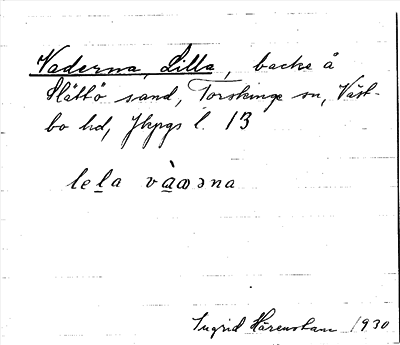 Vaderna, Lilla, backe å
Slättö sand, Torskinge sn, Väst-
bo hd, Jkpgs l. 13
lela vàꝏəna
Ingrid Härenstam 1930